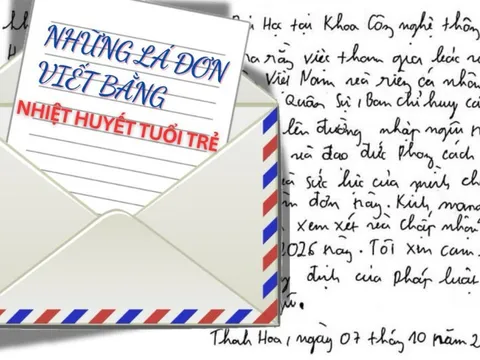 NHỮNG LÁ ĐƠN
VIẾT BẰNG
NHIỆT HUYẾT TUỔI TRẺ
Học tại Khoa Công nghệ thôn
ra rằng việc tham gia
Việt Nam và riêng cá nhân
Quân Sự, Ban chỉ huy
lên đường nhập ngũ
và đạo đức phong cách
sức lực của mình
đơn này. Kính mong
xem xét và chấp nhận
2026 này. Tôi xin cam
định của pháp luật
Thanh Hoá, ngày 07 tháng 10 năm 2